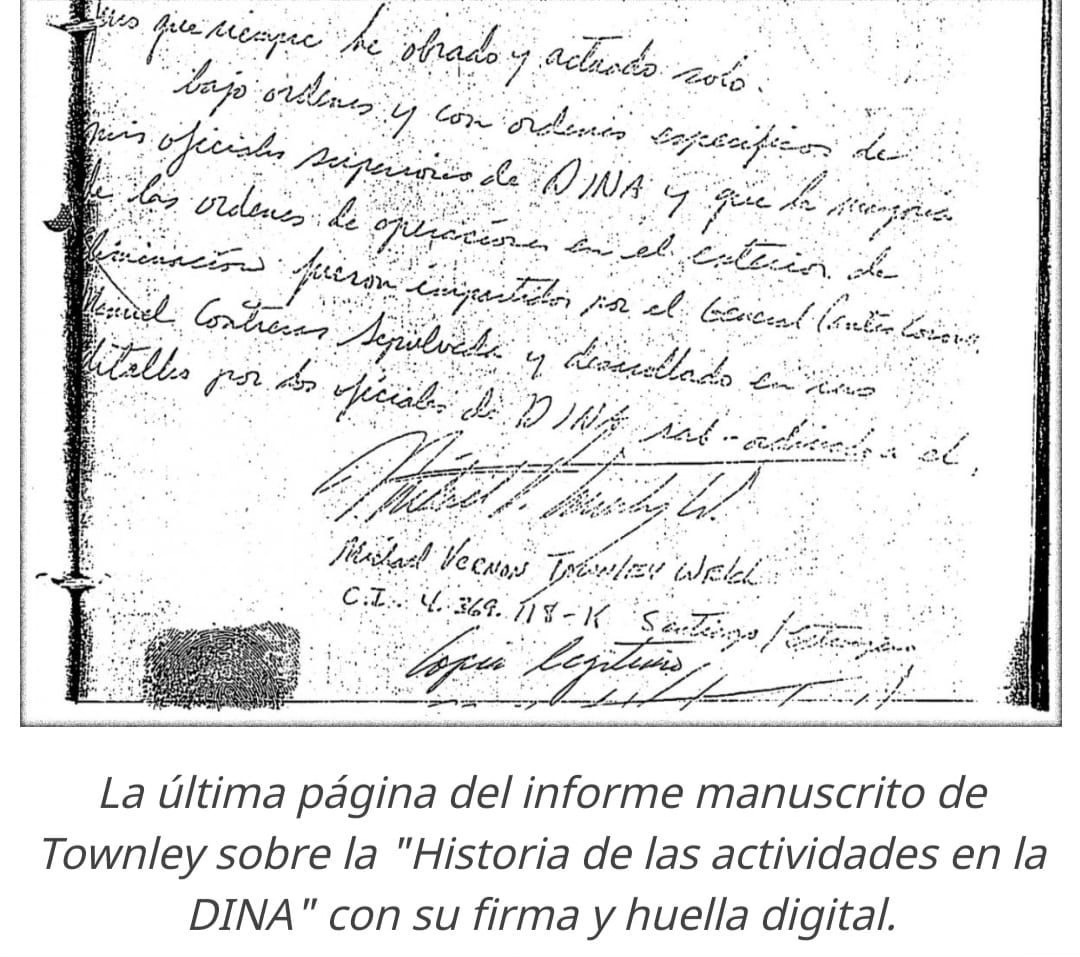 que siempre he obrado y actuado solo.
bajo ordenes y con ordenes especificos de
mis oficiales superiores de DINA y que la mayoria
de las ordenes de operaciones en el exterior de
eliminación fueron impartidos por el General
Manuel Contreras Sepúlveda y desarrollado en sus
detalles por los oficiales de DINA sub-ordinados a el,
Michael Vernon Townley Welch
C.I. 4.369.118-K Santiago/
Copia legitima
La última página del informe manuscrito de
Townley sobre la "Historia de las actividades en la
DINA" con su firma y huella digital.